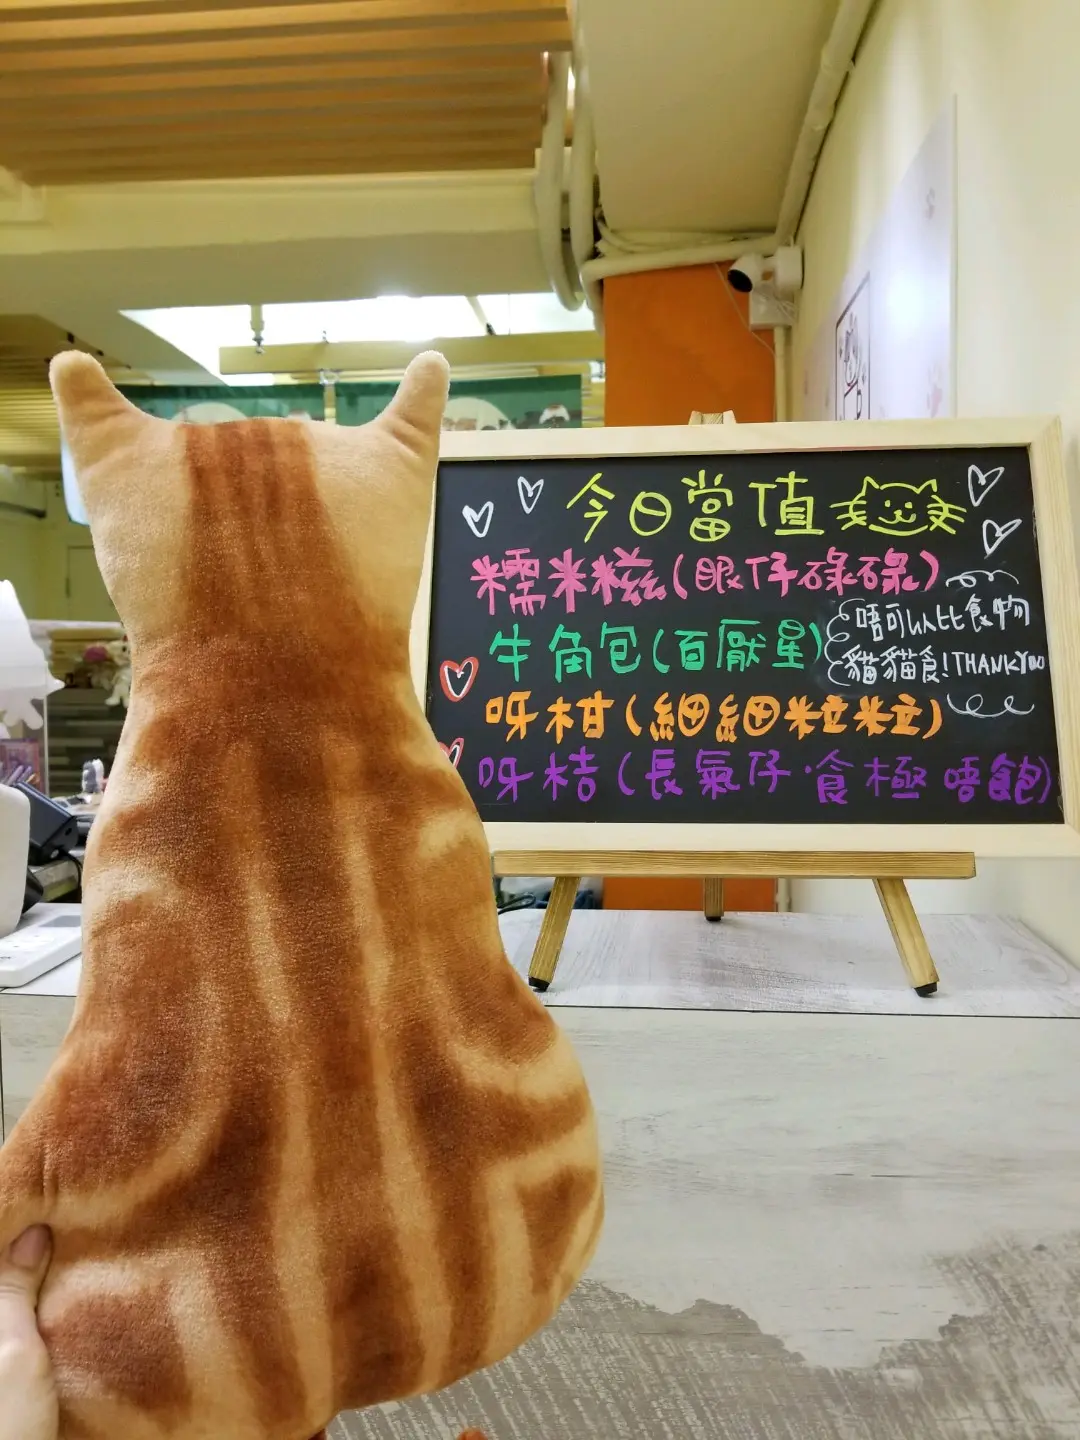 今日當值
糯米糍(眼仔碌碌)
牛角包(百厭星)
唔可以比食物
貓貓食!THANKYOU
呀柑(細細粒粒)
呀桔(長氣仔·食極唔飽)